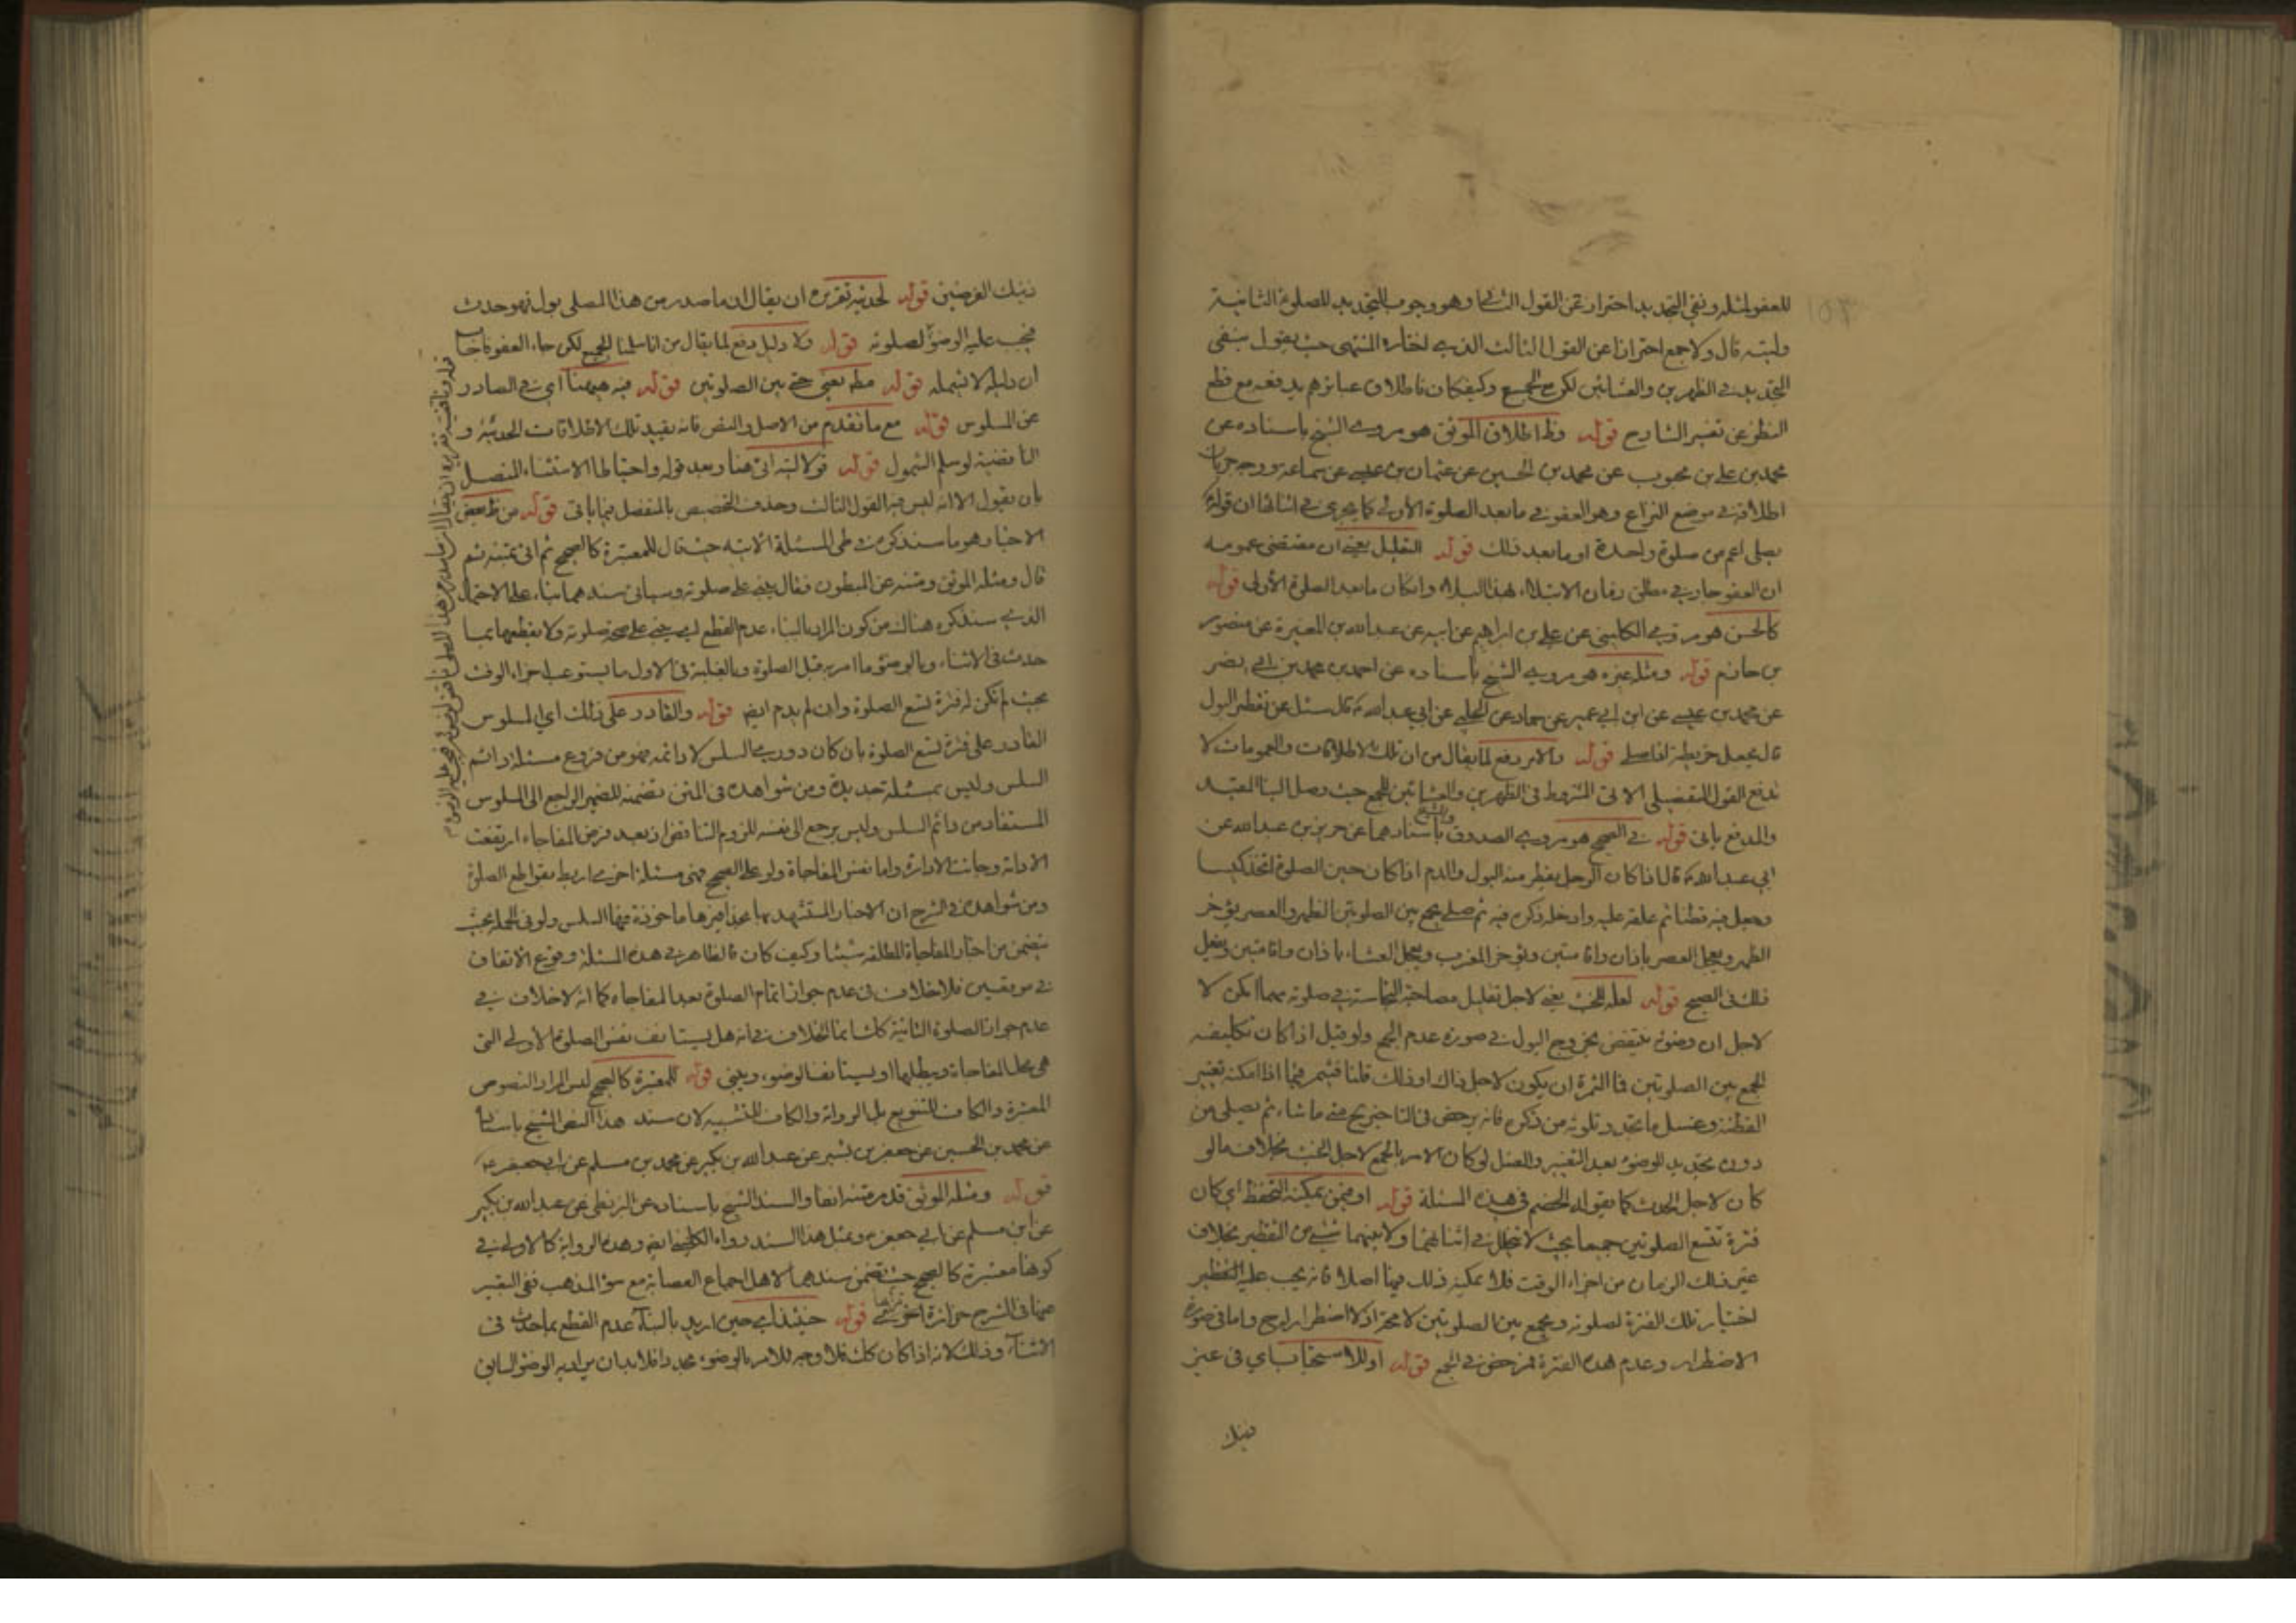 للعفو لمثله ونفى التجديد احتراز عن القول الثانى وهو وجوب التجديد للصلوة الثانية
وليته قال ولا جمع احترازا عن القول الثالث الذى اختاره المنتهى حيث يقول بنفى
التجديد فى الظهرين والعشائين لكن مع الجمع وكيفكان فاطلاق عبائرهم يدفعه مع قطع
النظر عن تفسير الشارح قوله وظ اطلاق الموثق هو مروى الشيخ باسناده عن
محمد بن على بن محبوب عن محمد بن الحسين عن عثمان بن عيسى عن سماعة ووجه جريان
اطلاقه فى موضع النزاع وهو العفو فى ما بعد الصلوة الاولى كما يجرى فى اثنائها ان قوله
يصلى اعم من صلوة واحدة او ما بعد ذلك قوله التعليل يعنى ان مقتضى عمومه
ان العفو جار فى مطلق زمان الابتلاء بهذا البلاء وان كان ما بعد الصلوة الأولى قوله
كالحسن هو مروى الكلينى عن على بن ابراهيم عن ابيه عن عبد الله بن المغيرة عن منصور
بن حازم قوله ومثله غيره هو مروى الشيخ باسناده عن احمد بن محمد بن ابى نصر
عن محمد بن عيسى عن ابن ابى عمير عن حماد عن الحلبى عن ابى عبد الله ع قال سئل عن تقطير البول
قال يجعل خريطة اذا صلى قوله والامر دفع لما يقال من ان تلك الاطلاقات والعمومات لا
تدفع القول التفصيلى الاتى المشروط فى الظهرين والعشائين للجمع حيث وصل الينا المقيد
والمدفع ياتى قوله فى الصحيح هو مروى الصدوق والشيخ باسنادهما عن حريز بن عبد الله عن
ابى عبد الله ع قال اذا كان الرجل يقطر منه البول والدم اذا كان حين الصلوة اتخذ كيسا
وجعل فيه قطنا ثم علقه عليه وادخل ذكره فيه ثم صلى يجمع بين الصلوتين الظهر والعصر يؤخر
الظهر ويعجل العصر باذان واقامتين ويؤخر المغرب ويعجل العشاء باذان واقامتين ويفعل
ذلك فى الصبح قوله لعله للخبث يعنى لاجل تقليل مصاحبة النجاسة فى صلوته مهما امكن لا
لاجل ان وضوئه ينتقض بخروج البول فى صورة عدم الجمع ولو قيل اذا كان تكليفه
الجمع بين الصلوتين فما الثمرة ان يكون لاجل ذاك او ذلك قلنا فيثمر فيما اذا امكنه تغيير
القطنة وغسل ما تجدد تلوثه من ذكره فانه يرخص فى التاخير ح متى ما شاء ثم يصلى من
دون تجديد للوضوء بعد التغيير والغسل لو كان الامر بالجمع لاجل الخبث بخلاف ما لو
كان لاجل الحدث كما يقوله الخصم فى هذه المسئلة قوله او فيمن يمكنه التحفظ اى كان
فترة تتسع الصلوتين جميعا بحيث لا تخلل فى اثنائهما ولا بينهما شىء من التقطير بخلاف
غير ذلك الزمان من اجزاء الوقت فلا يمكنه ذلك فيها اصلا فانه يجب عليه
اختيار تلك الفترة لصلوته ويجمع بين الصلوتين لا محة اذ لا اضطرار له ح واما فى صورة
الاضطرار وعدم هذه الفترة فرخص فى الجمع قوله او للاستحباب اى فى غير
ذينك
ذينك الفرضين قوله لحدثيه تقريره ان يقال ان ما صدر من هذا المصلى بول فهو حدث
فيجب عليه الوضوء لصلوته قوله ولا دليل دفع لما يقال من انا سلمنا الجميع لكن جاء العفو
ان دليله لا يشمله قوله مطه يعنى حتى بين الصلوتين قوله فيه هيهنا اى فى الصادر
عن المسلوس قوله مع ما تقدم من الاصل والنص فانه يقيد تلك الاطلاقات الحدثية و
الناقضية لو سلم الشمول قوله قولا ليته اتى هنا وبعد قوله واحتياطا الاستثناء المتصل
بان يقول الا انه ليس فيه القول الثالث وحذف التخصيص بالمنفصل فيما ياتى قوله من ظ بعض
الاخبار هو ما سنذكره فى طى المسئلة الاتيه حيث قال للمعتبرة كالصحيح ثم اتى بمتنه ثم
قال ومثله الموثق ومتنه عن المبطون فقال يبنى على صلوته وسياتى سندهما بناء على الاحتمال
الذى سنذكره هناك من كون المراد بالبناء عدم القطع اى يبنى على صحة صلوته ولا يقطعها بما
حدث فى الاثناء وبالوضوء ما امر به قبل الصلوة وبالغلبة فى الاول ما يستوعب اجزاء الوقت
بحيث لم تكن له فترة تسع الصلوة وان لم يدم ايضه قوله والقادر على ذلك اى المسلوس
القادر على فترة تسع الصلوة بان كان دورى السلس لا دائمه فهو من فروع مسئلة دائم
السلس وليس بمسئلة جديدة ومن شواهده فى المتن تضمنه للضمير الراجع الى المسلوس
المستفاد من دائم السلس وليس يرجع الى نفسه للزوم التناقض اذ بعد فرض المفاجاء ارتفعت
الادامة وجائت الادارة واما نفس المفاجاة ولو على الصحيح فهى مسئلة اخرى اربط بقواطع الصلوة
ومن شواهده فى الشرح ان الاخبار المستشهد بها بحذافيرها ماخوذة فيها السلس ولو فى الجملة بحيث
يتضمن من اخبار المفاجاة المطلقه شيئا وكيف كان فالظاهر فى هذه المسئلة وقوع الاتفاق
فى موضعين فلا خلاف فى عدم جواز اتمام الصلوة بعد المفاجاه كما انه لا خلاف فى
عدم جواز الصلوة الثانية كك انما الخلاف فى انه هل يستانف نفس الصلوة الاولى التى
هى محل المفاجاة ويبطلها او يستانف الوضوء ويبنى قوله للمعتبرة كالصحيح ليس المراد النصوص
المعتبرة والكاف للتنويع بل الرواية والكاف للتشبيه لان سند هذا النص الشيخ باسناده
عن محمد بن الحسين عن جعفر بن بشير عن عبد الله بن بكير عن محمد بن مسلم عن ابى جعفر ع
قوله ومثله الموثق قد مر متنه انفا والسند الشيخ باسناده عن البزنطى عن عبد الله بن بكير
عن ابن مسلم عن ابى جعفر ع وبمثل هذا السند رواه الكلينى ايضه وهذه الرواية كالاولى فى
كونها معتبرة كالصحيح حيث تضمن سندهما لاهل اجماع العصابة مع سوء المذهب ففى التعبير
عنهما فى الشرح حزازة قوله حينئذ اى حين اريد بالبناء عدم القطع بما حدث فى
الاثناء وذلك لانه اذا كان كك فلا وجه للامر بالوضوء مجددا فلابد ان يراد به الوضوء السابق